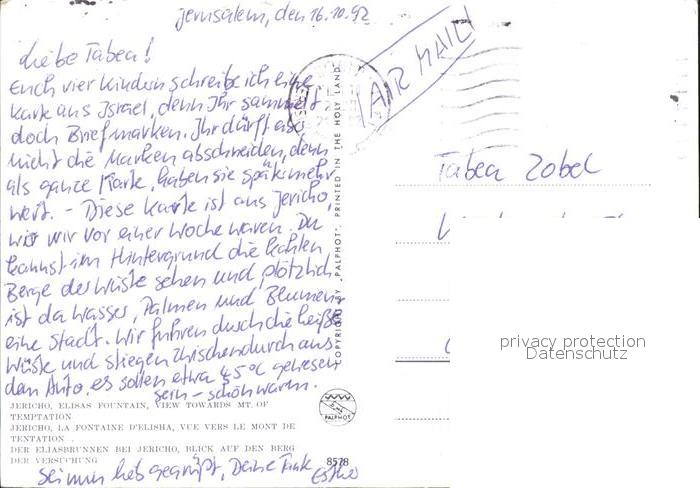 Jerusalem, den 16.10.92
Liebe Tabea!
Euch vier Kindern schreibe ich eine
Karte aus Israel, denn Ihr sammelt
doch Briefmarken. Ihr dürft also
nicht die Marken abschneiden, denn
als ganze Karte, haben sie später mehr
wert. – Diese Karte ist aus Jericho,
wo wir vor einer Woche waren. Du
kannst im Hintergrund die kahlen
Berge der Wüste sehen und plötzlich
ist da Wasser, Palmen und Blumen,
eine Stadt. Wir fuhren durch die heiße
Wüste und stiegen zwischendurch aus
dem Auto, es sollen etwa 45°C gewesen
sein – schön warm.
JERICHO, ELISAS FOUNTAIN, VIEW TOWARDS MT. OF
TEMPTATION
JERICHO, LA FONTAINE D'ELISHA, VUE VERS LE MONT DE
TENTATION
DER ELIASBRUNNEN BEI JERICHO, BLICK AUF DEN BERG
DER VERSUCHUNG
Sei nun lieb gegrüßt, Deine Tante
COPYRIGHT BY "PALPHOT", PRINTED IN THE HOLY LAND
PALPHOT
8578
AIR MAIL
Tabea Zobel
privacy protection
Datenschutz